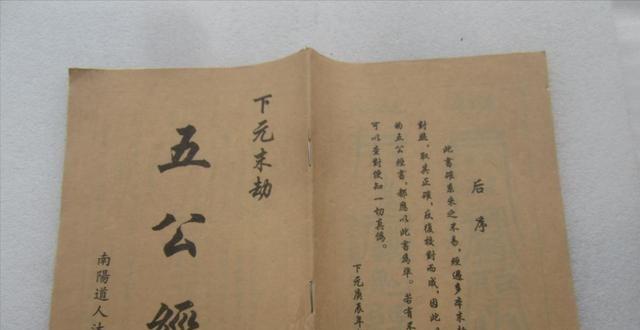 下元末劫
五公經
南陽道人
后序
此書確系來之不易，經過多本末
對照，取其正確，反復校對而成，因此，
的五公經書，都應以此書為準。若有不
可以查對便知一切真偽。
下元庚辰年